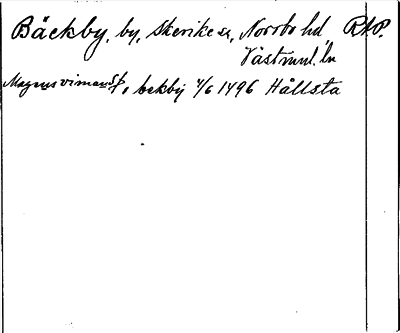 Bäckby, by, Skerike sn, Norrbo hd, RAP.
Västmanl. ln
Magnus vimanss i bekby 4/6 1496 Hållsta